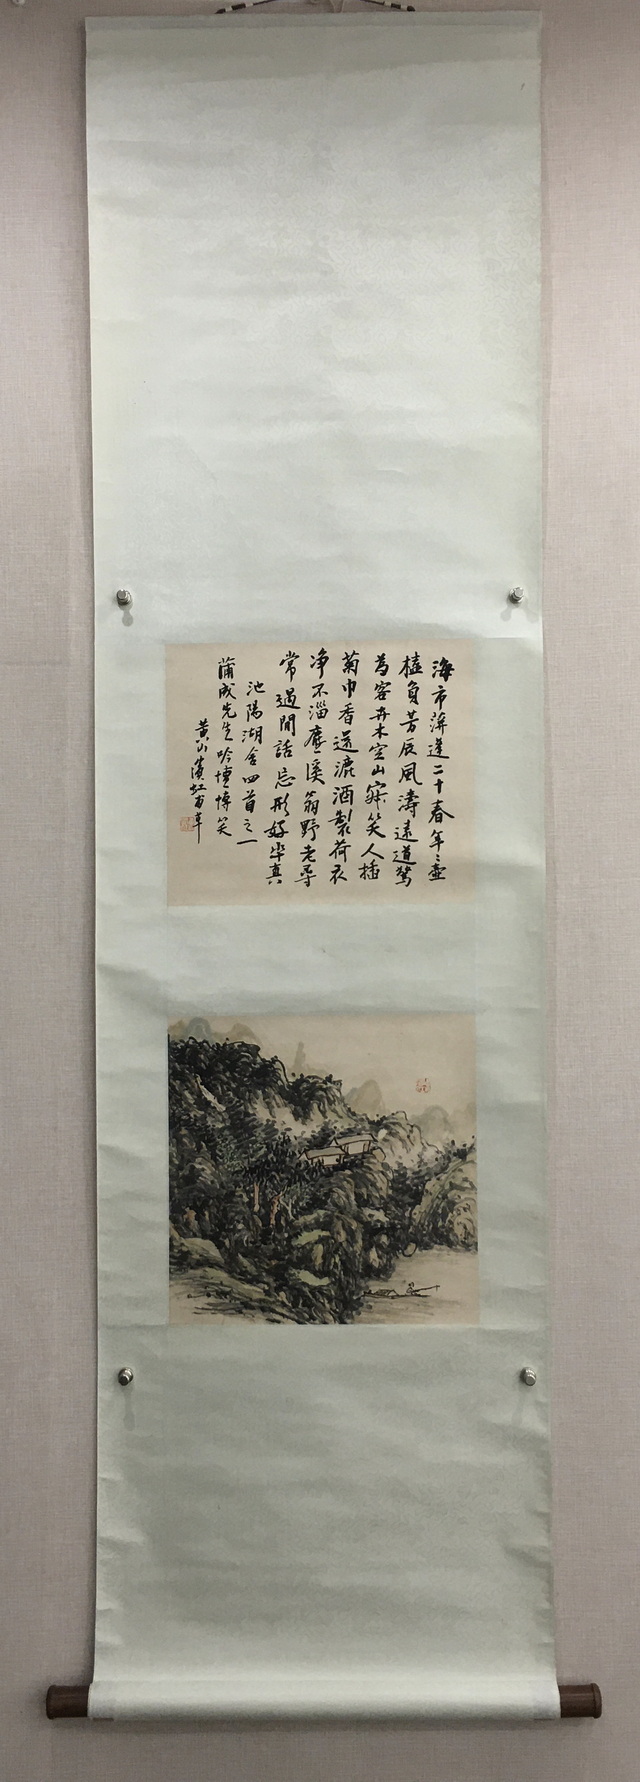 海市萍蓬二十春年〻壺
榼負芳辰風濤遠道驚
為客卉木空山寐笑人插
菊巾香還漉酒製荷衣
净不淄塵溪翁野老尋
常過閒話忘形好率真
池陽湖舍四首之一
蒲成先生吟壇博笑
黃山賓虹甫草